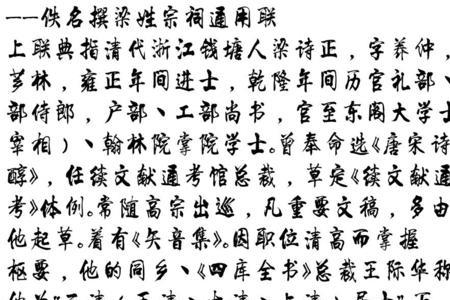 ——佚名撰梁姓宗祠通用联
上联典指清代浙江钱塘人梁诗正，字养仲，
芗林，雍正年间进士，乾隆年间历官礼部、
部侍郎，户部、工部尚书，官至东阁大学士
宰相）、翰林院掌院学士。曾奉命选《唐宋诗
醇》，任续文献通考馆总裁，草定《续文献通
考》体例。常随高宗出巡，凡重要文稿，多由
他起草。着有《矢音集》。因职位清高而掌握
枢要，他的同乡、《四库全书》总裁王际华称